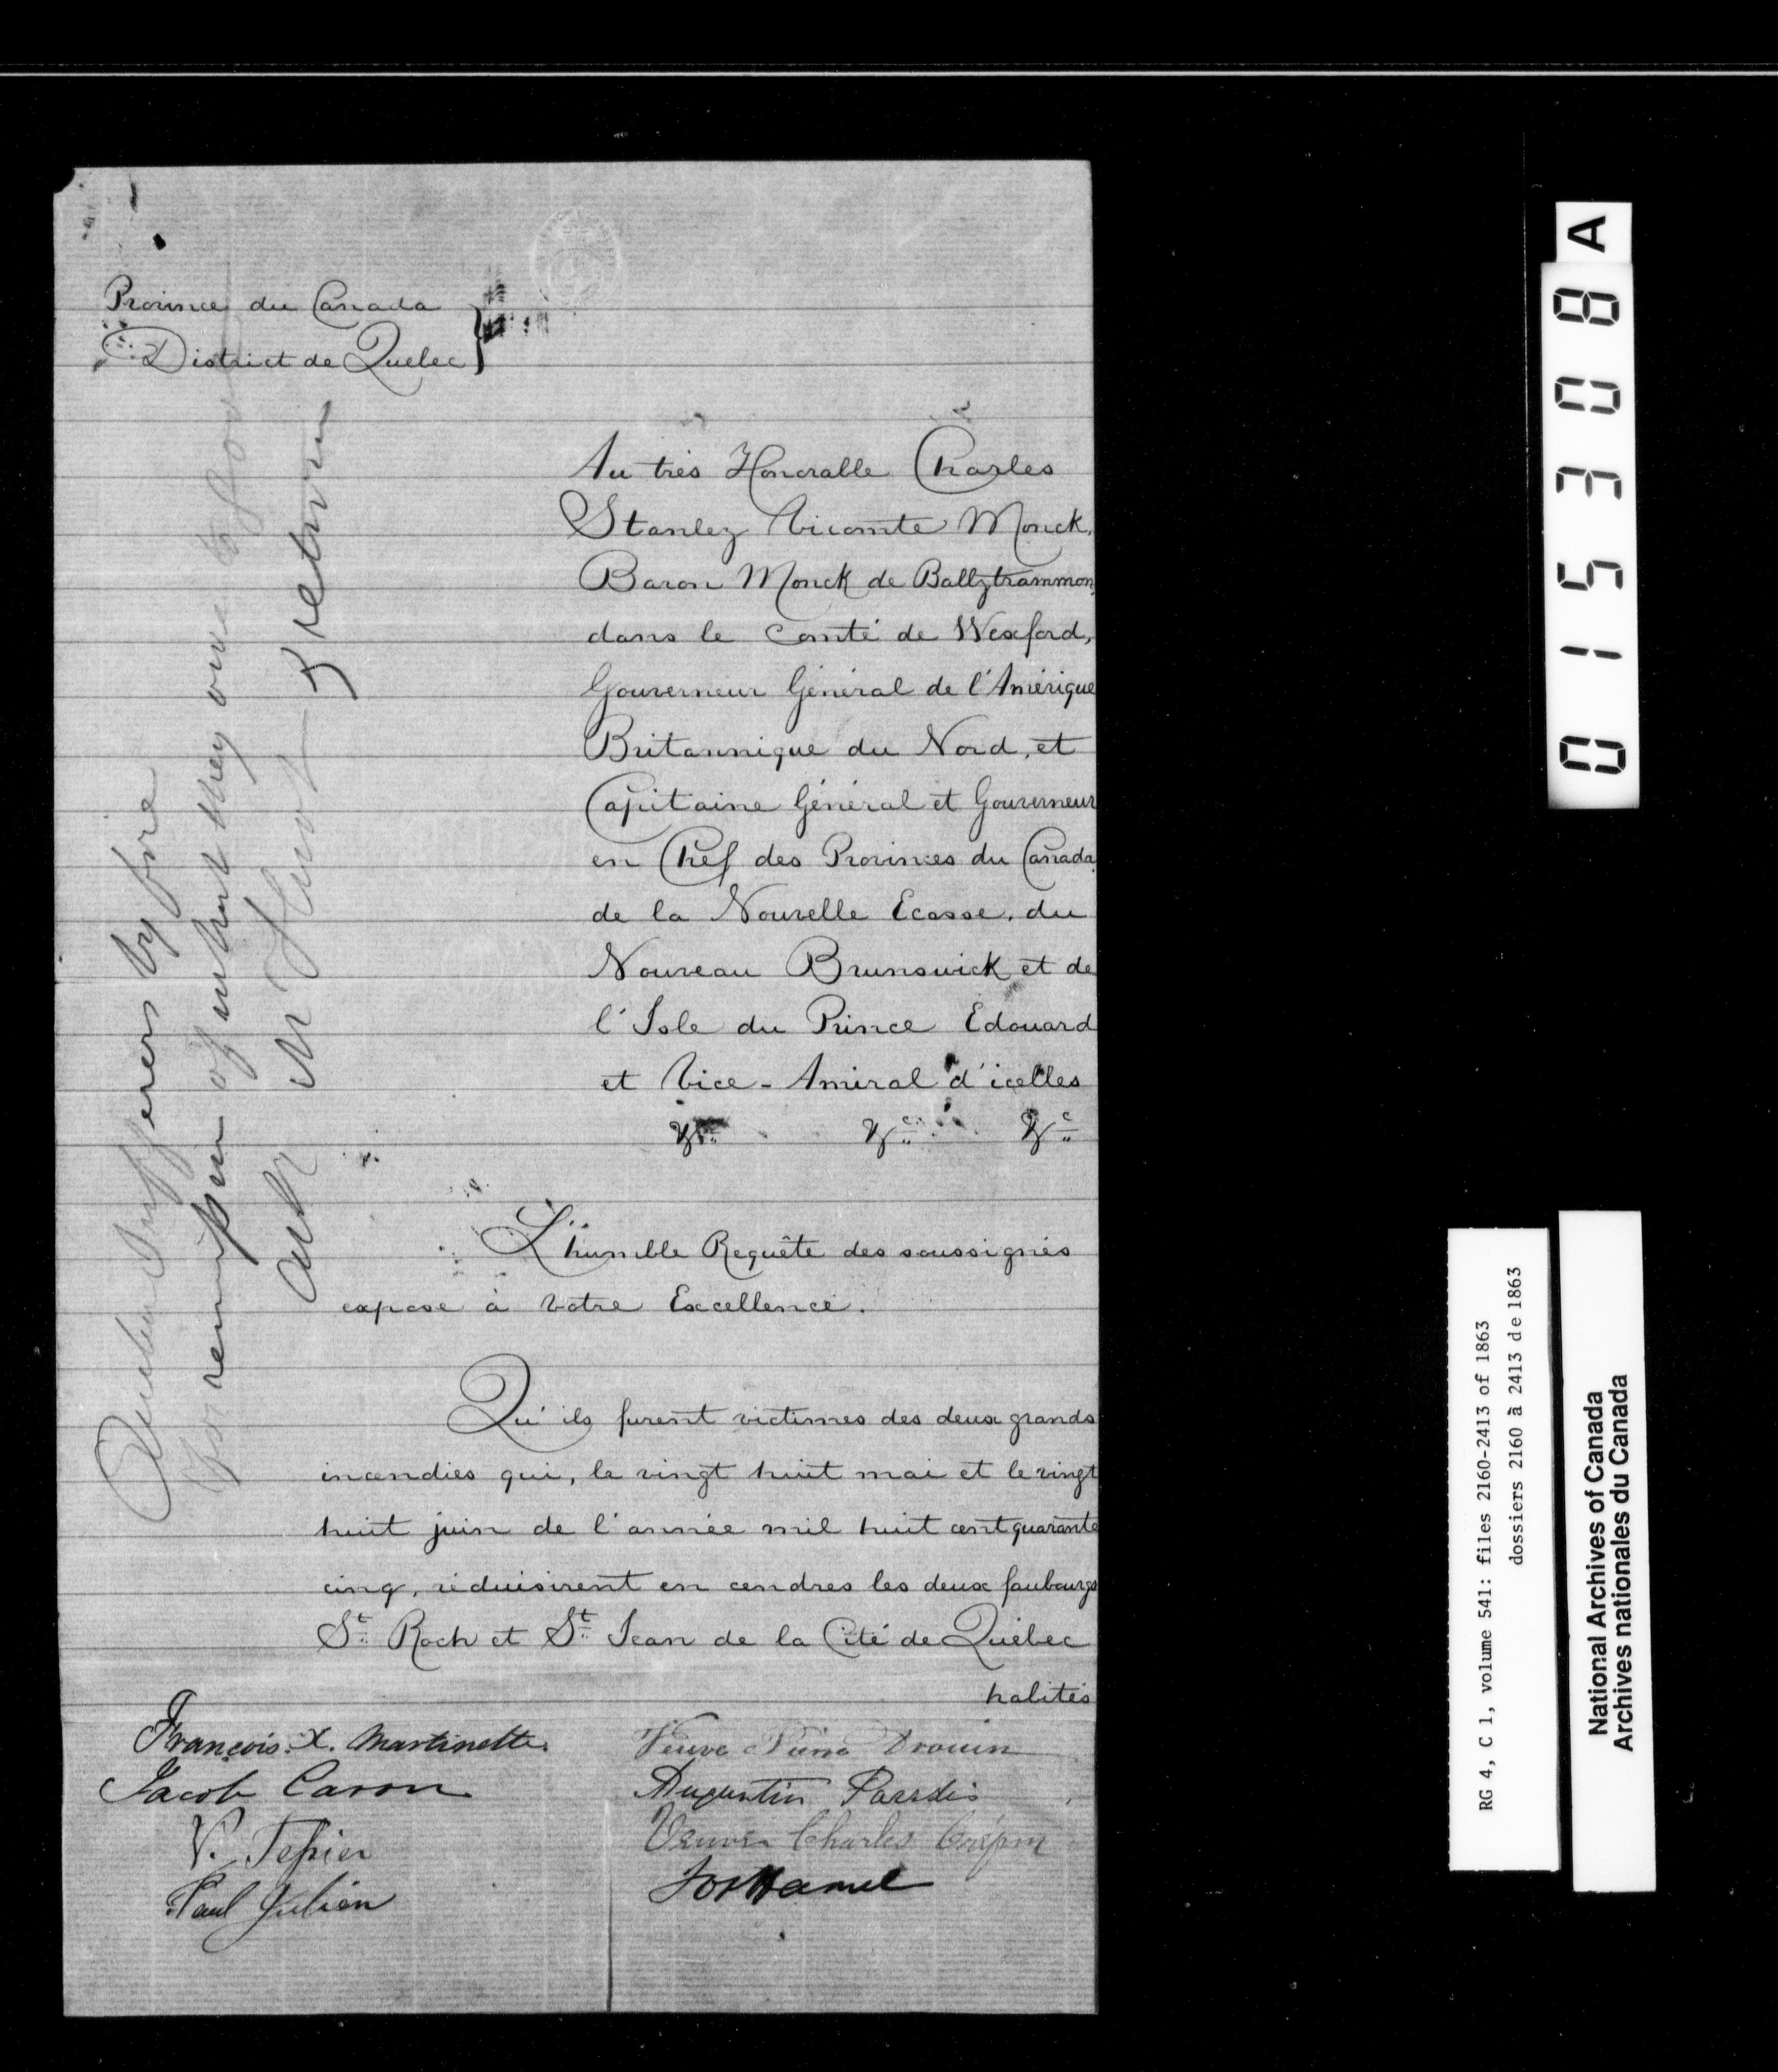 Province du Canada
District de Quebec
Au très Honorable Charles
Stanley Vicomte Monck,
Baron Monck de Ballytrammon,
dans le Comté de Wexford,
Gouverneur Général de l'Amérique
Britannique du Nord, et
Capitaine Général et Gouverneur
en Chef des Provinces du Canada
de la Nouvelle Ecosse, du
Nouveau Brunswick et de
l'Isle du Prince Edouard
et Vice-Amiral d'icelles
&c &c &c
L'humble Requête des soussignés
expose à Votre Excellence.
Qu'ils furent victimes des deux grands
incendies qui, le vingt huit mai et le vingt
huit juin de l'année mil huit cent quarante
cinq, réduisirent en cendres les deux faubourgs
St Roch et St Jean de la Cité de Québec
habités
François. X. Martinette.
Jacob Caron
V. Tessier
Paul Julien
Veuve Pierre Drouin
Augustin Paradis
Veuve Charles Crépin
Jos Hamel
Quebec Sufferers by fire
For remission of what they owe to Gov
Ask Mr & return
015308A
RG 4, C 1, volume 541: files 2160-2413 of 1863
dossiers 2160 à 2413 de 1863
National Archives of Canada
Archives nationales du Canada